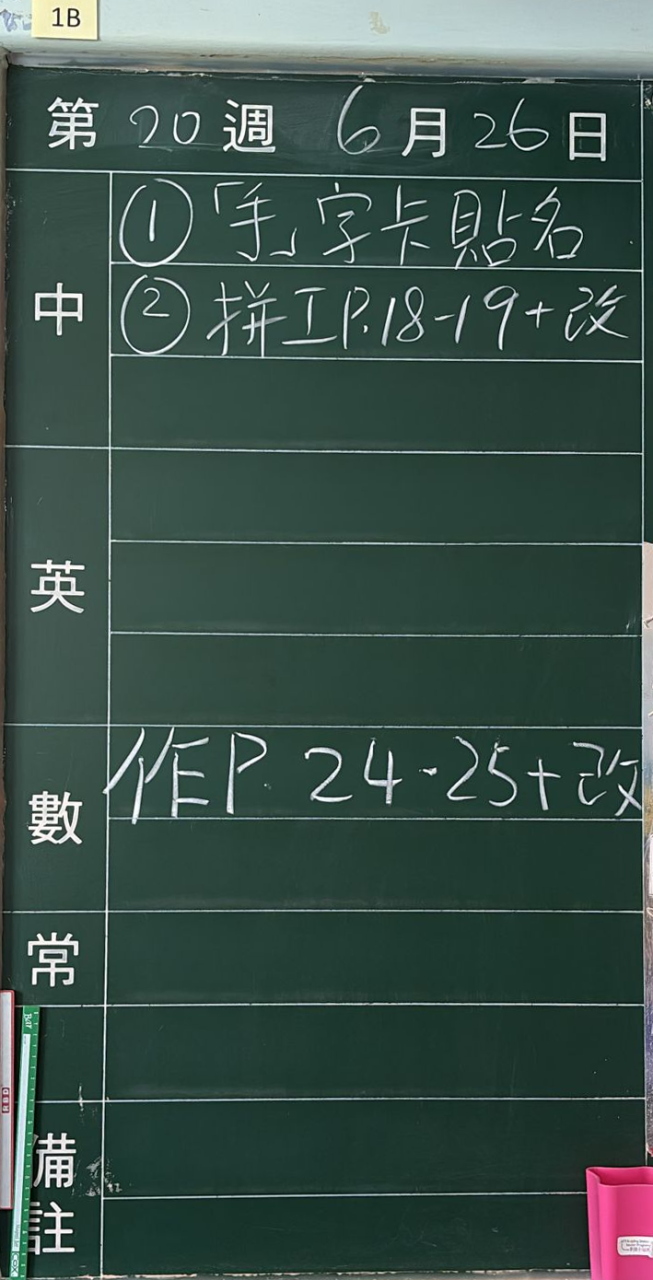 1B
第 20 週 6 月 26 日
中
① 「手」字卡貼名
② 拼工P.18-19+改
英
數
作P. 24-25+改
常
備註